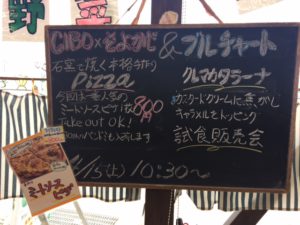 野 菜
CIBO×そよかじ & ブルチャート
石窯で焼く本格手作り
Pizza
クレマカタラーナ
今回は一番人気の
ミートソースピザを800円
Take out OK!
カスタードクリームに焦がし
キャラメルをトッピング
試食販売会
/15(土) 10:30〜
ミートソース
ピザ